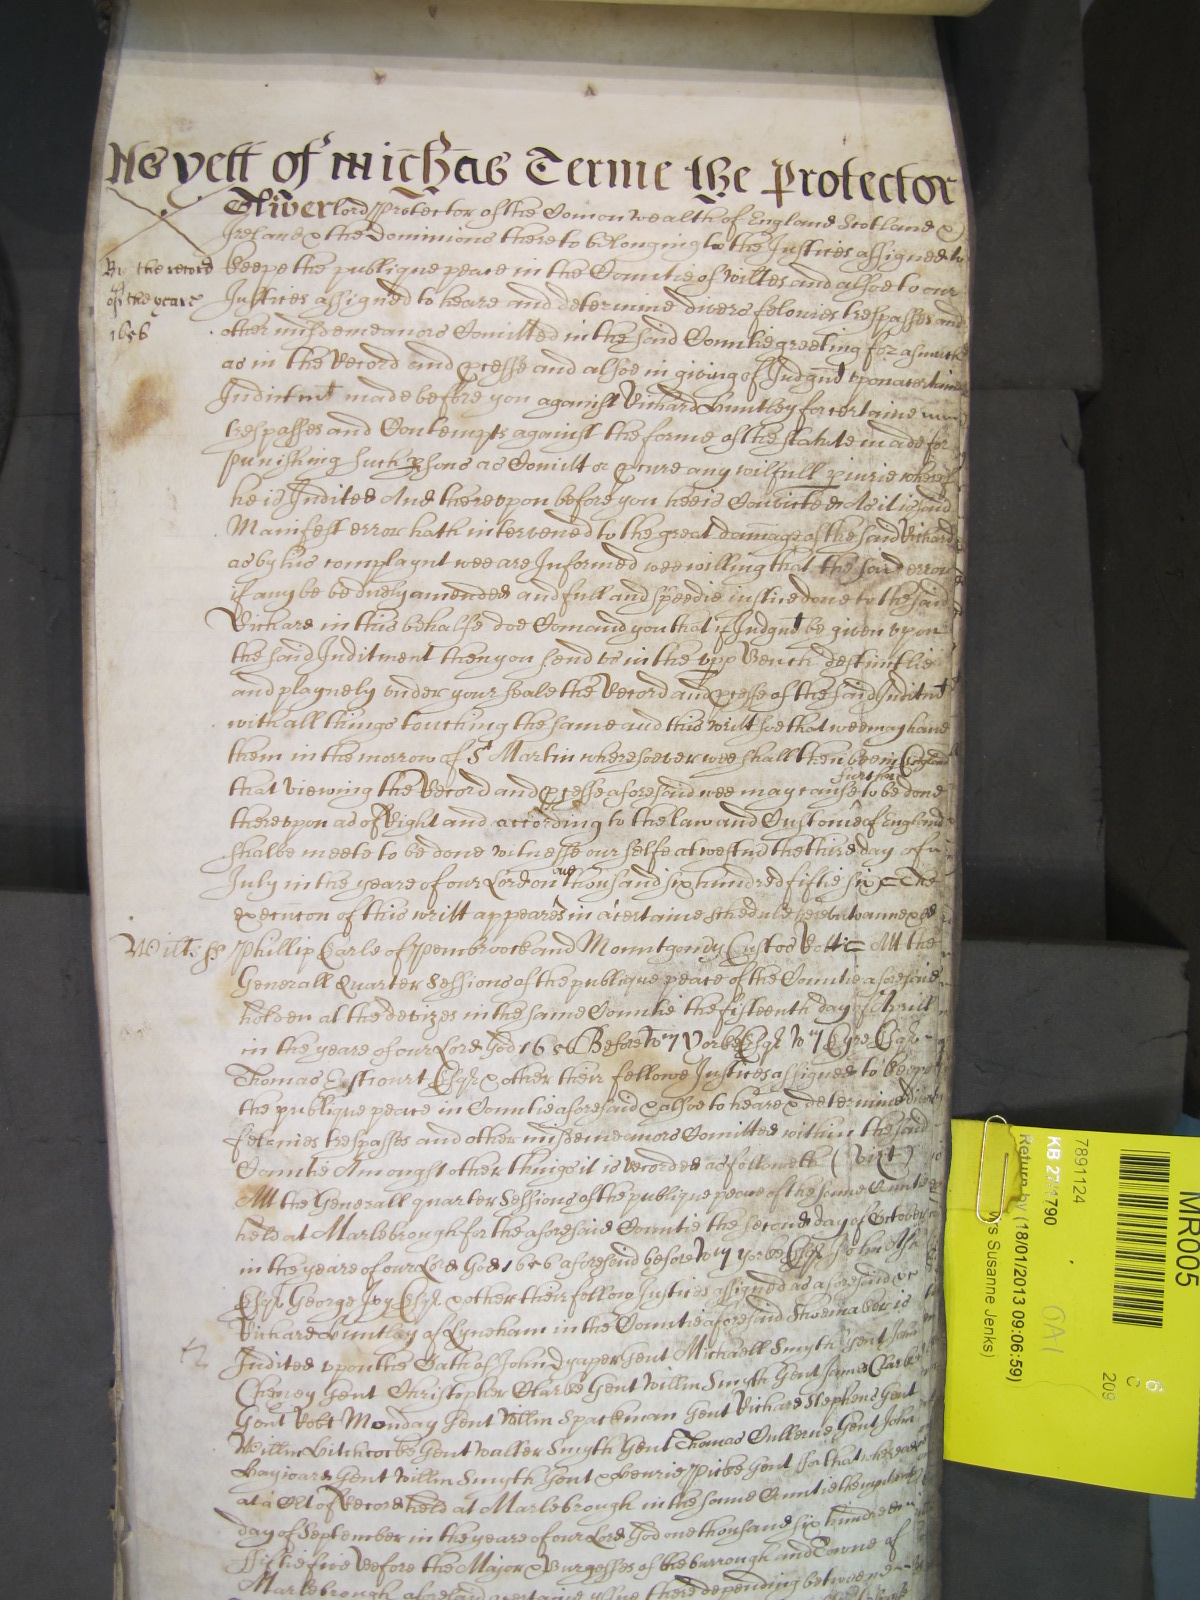 As yett of Michās Terme the Protector
Oliver Lord Protector of the Comon wealth of England Scotland &
Ireland & the Dominions thereto belonging to the Justices assigned to
By the record
keepe the publique peace in the Countie of Wiltes and alsoe to our
of the yeare
Justices assigned to heare and determine divers felonies trespasses and
1656
other misdemeanors Comitted in the said Countie greeting for asmuch
as in the Record and pcesse and alsoe in giving of Judgmt upon a certaine
Indictmt made before you against Richard Huntley for certaine
trespasses and Contempts against the forme of the statute made for
punishing such psons as Comitt or pcure any wilfull piurie whereof
he is Indited And thereupon before you hee is Convicted As it is said
Manifest error hath intervened to the great damage of the said Richard
as by his complaynt wee are Informed wee willing that the said error
if any be be duely amended and full and speedie iustice done to the said
Richard in this behalfe doe Comand you that if Judgmt be given upon
the said Inditment then you send us in the upp Bench destinctlie
and playnely under your seale the Record and pcesse of the said Inditmt
with all things touching the same and this writt soe that wee may have
them in the morrow of St Martin wheresoever wee shall then bee in England
that viewing the Record and pcesse aforesaid wee may cause further to be done
thereupon as of Right and according to the law and Custome of England
shalbe meete to be done witnesse our selfe at westmr the third day of
July in the yeare of our Lord one thousand six hundred fiftie six The
execucon of this writt appeares in a certaine schedule hereunto annexed
Wilts ss Phillip Earle of Pembroock and Mountgomy Custos Rotlo Att the
Generall Quarter Sessions of the publique peace of the Countie aforesaid
holden at the devizes in the same Countie the fifteenth day of Aprill
in the yeare of our Lord God 1656 Before Wm Yorke Esqr Wm Eyre Esqr
Thomas Estcourt Esqr & other their fellowe Justices assigned to keepe
the publique peace in Countie aforesaid & alsoe to heare & determine divers
felonies trespasses and other misdemeanors Comitted within the said
Countie Amongst other things it is recorded as followeth (vizt)
Att the Generall quarter Sessions of the publique peace of the same Countie
held at Marlebrough for the aforesaid Countie the second day of October
in the yeare of our Lord God 1656 aforesaid before Wm Yorke Esqr John
Esqr George Ivy Esqr & other their fellow Justices assigned as aforesaid &c
Richard Huntley of Lyneham in the Countie aforesaid Shoemaker is
Indited upon the Oath of John Draper Gent Michaell Smyth Gent John
Cheney Gent Christopher Clarke Gent Willm Smyth Gent James Clarke
Gent Robt Monday Gent Willm Spackman Gent Richard Stephens Gent
Willm Hitchcocke Gent Walter Smyth Gent Thomas Gent John
Haywarde Gent Willm Smyth Gent & Henrie Gent for that whereas
at a Cot of Record held at Marlebrough in the same Countie the
day of September in the yeare of our Lord God one thousand six hundred
fiftie five Before the Major & Burgesses of the burrough and Towne of
Marlebrough aforesaid a certaine issue there depending betweene
MR005
7891124
KB 27/1790
Return by (18/01/2013 09:06:59)
Susanne Jenks)
6
C
209